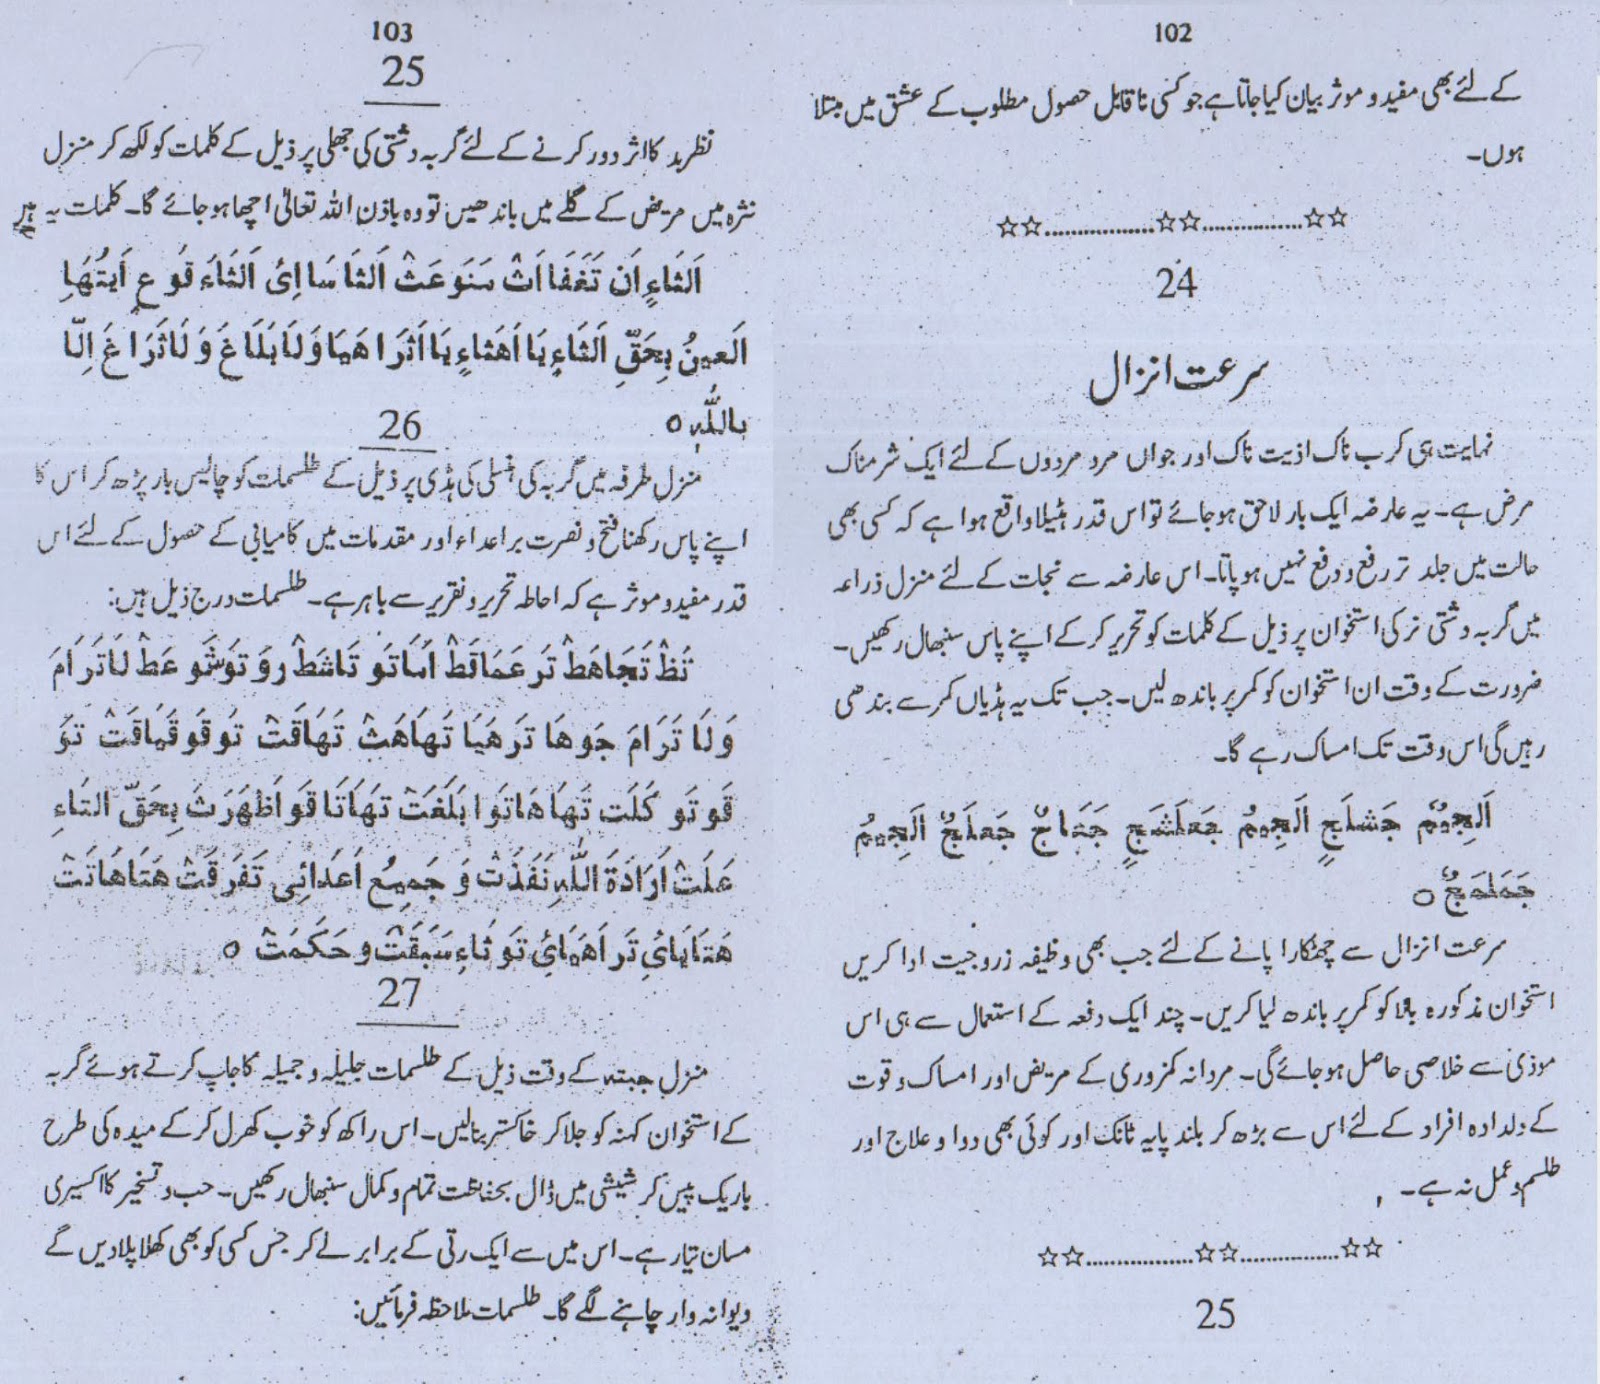 102
کے لئے بھی مفید و موثر بیان کیا جاتا ہے جو کسی ناقابل حصول مطلوب کے عشق میں مبتلا
ہوں۔
☆☆................☆☆...............☆☆
24
سرعت انزال
نہایت ہی کرب ناک اذیت ناک اور جواں مرد مردوں کے لئے ایک شرمناک
مرض ہے۔ یہ عارضہ ایک بار لاحق ہو جائے تو اس قدر ہٹیلا واقع ہوا ہے کہ کسی بھی
حالت میں جلد تر رفع و دفع نہیں ہو پاتا۔ اس عارضہ سے نجات کے لئے منزل ذراعہ
میں گربہ دشتی نر کی استخوان پر ذیل کے کلمات کو تحریر کر کے اپنے پاس سنبھال رکھیں۔
ضرورت کے وقت ان استخوان کو کمر پر باندھ لیں۔ جب تک یہ ہڈیاں کمر سے بندھی
رہیں گی اس وقت تک امساک رہے گا۔
اَلجِیْمُ جَشلَجٍ اَلجِیمُ جَعلَشَجٍ جَجَاجٌ جَعلَجٌ اَلجِیمُ
سرعت انزال سے چھٹکارا پانے کے لئے جب بھی وظیفہ زروجیت ادا کریں
استخوان مذکورہ بالا کو کمر پر باندھ لیا کریں۔ چند ایک دفعہ کے استعمال سے ہی اس
موذی سے خلاصی حاصل ہو جائے گی۔ مردانہ کمزوری کے مریض اور امساک و قوت
کے دلدادہ افراد کے لئے اس سے بڑھ کر بلند پایہ ٹانک اور کوئی بھی دوا و علاج اور
طلسم و عمل نہ ہے۔
☆☆................☆☆...............☆☆
25
103
25
نظر بد کا اثر دور کرنے کے لئے گربہ دشتی کی جھلی پر ذیل کے کلمات کو لکھ کر منزل
نثرہ میں مریض کے گلے میں باندھیں تو وہ باذن اللہ تعالیٰ اچھا ہو جائے گا۔ کلمات یہ ہیں
اَلثَاءٍ اَن تَغَفَا اَثْ سَنَوعَتْ اَلثَا سَا اِیُ اَلثَاءَ قُوعٍ اَیتُهَا
اَلعینُ بِحَقِّ اَلثَاءٍ یَا اَهثاءٍ یَا اَثرَا هَیَا وَلَا بَلَاغَ وَ لَا ثَرَاغَ اِلّا
باللّٰهِ ٥
26
منزل طرفہ میں گربہ کی ہنسلی کی ہڈی پر ذیل کے طلسمات کو چالیس بار پڑھ کر اس کا
اپنے پاس رکھنا فتح و نصرت بر اعداء اور مقدمات میں کامیابی کے حصول کے لئے اس
قدر مفید و موثر ہے کہ احاطہ تحریر و تقریر سے باہر ہے۔ طلسمات درج ذیل ہیں:
تَظْ تَجَاهَطْ تَر عَمَاقَطْ اَمَاتَو تَاشَطْ رو تَوشَو عَطْ لَا تَرَامَ
وَلَا تَرَامَ جَوهَا تَرهَیَا تَهَاهَتْ تَهَاقَتْ تَوقَو قَمَاقَتْ تَو
قَو تَو کَلَت تَهَا هَاتَوا بَلَغَتْ تَهَاتَا قَو اَظهَرَتَ بِحَقِّ التاءِ
عَلَتْ اَرَادَةَ اللّٰهِ نَفَذَتْ وَ جَمِیعُ اَعدَائِی تَفَرَقَتْ هَتَاهَاتَتْ
هَتَایَائِ تَر اَهَیَائِ تَو ثَاءِ سَبَقَتْ وَحَکَمَتْ ٥
27
منزل جبتہ کے وقت ذیل کے طلسمات جلیلہ و جمیلہ کا جاپ کرتے ہوئے گربہ
کے استخوان کہنہ کو جلا کر خاکستر بنا لیں۔ اس راکھ کو خوب کھرل کر کے میدہ کی طرح
باریک پیس کر شیشی میں ڈال بحفاظت تمام و کمال سنبھال رکھیں۔ حب و تسخیر کا اکسیری
مسان تیار ہے۔ اس میں سے ایک رتی کے برابر لے کر جس کسی کو بھی کھلا پلا دیں گے
دیوانہ وار چاہنے لگے گا۔ طلسمات ملاحظہ فرمائیں: